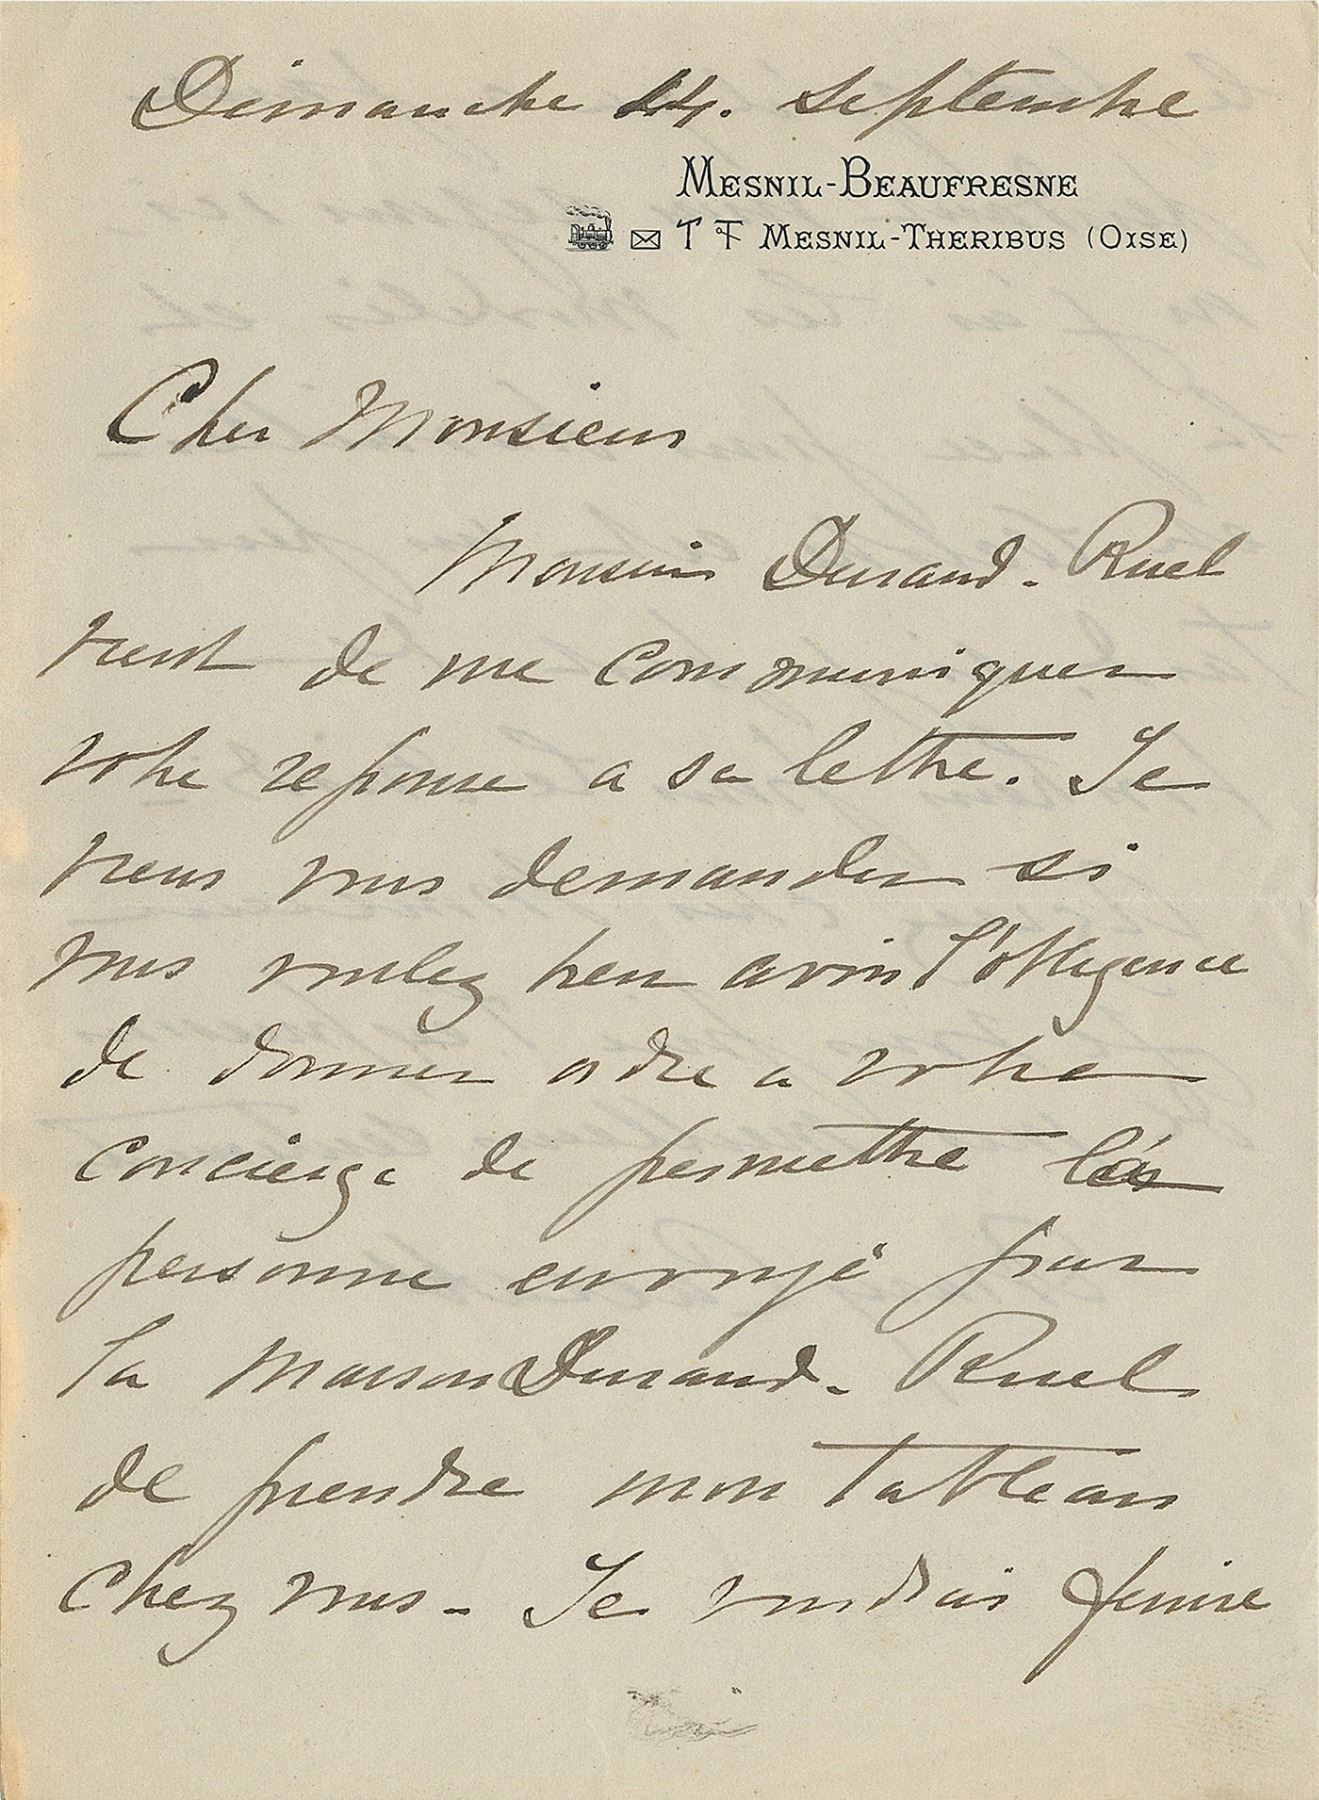 Dimanche 24. Septembre
MESNIL-BEAUFRESNE
T F MESNIL-THERIBUS (OISE)
Cher Monsieur
Monsieur Durand-Ruel
vient de me communiquer
votre reponse a sa lettre. Je
viens vous demander si
vous voulez bien avoir l'obligence
de donner ordre a votre
concierge de permettre
personne envoyé par
la maison Durand-Ruel
de prendre mon tableau
chez vous - Je voudrais finire